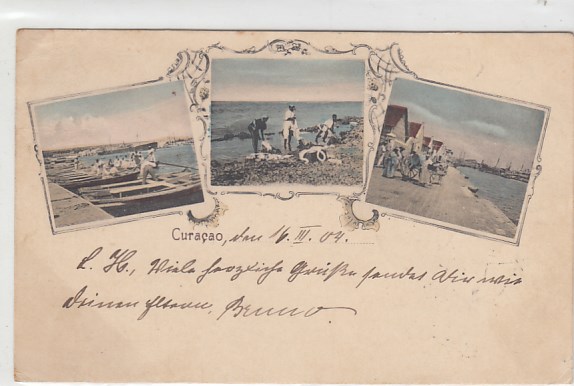 Curaçao, den 16. III. 04.
L. H., Viele herzliche Grüße sendet Dir wie
Deinen Eltern, Bruno